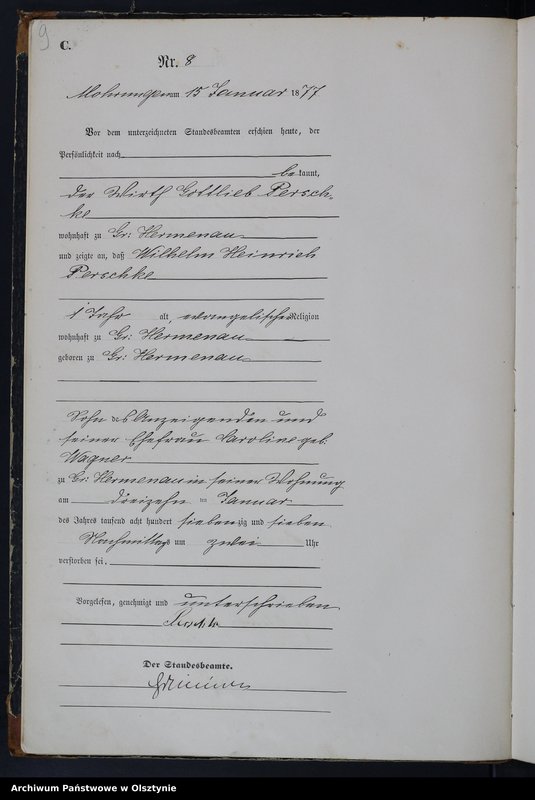 9
C.
Nr. 8
Mohrungen am 15 Januar 1877
Vor dem unterzeichneten Standesbeamten erschien heute, der
Persönlichkeit nach
bekannt,
der Wirth Gottlieb Persch-
ke
wohnhaft zu Gr: Hermenau
und zeigte an, daß Wilhelm Heinrich
Perschke
1 Jahr alt, evangelischer Religion
wohnhaft zu Gr: Hermenau
geboren zu Gr: Hermenau
Sohn des Anzeigenden und
seiner Ehefrau Caroline geb.
Wagner
zu Gr: Hermenau in seiner Wohnung
am dreizehn ten Januar
des Jahres tausend acht hundert siebenzig und sieben
Nachmittags um zwei Uhr
verstorben sei.
Vorgelesen, genehmigt und unterschrieben
Perschke
Der Standesbeamte.
Archiwum Państwowe w Olsztynie